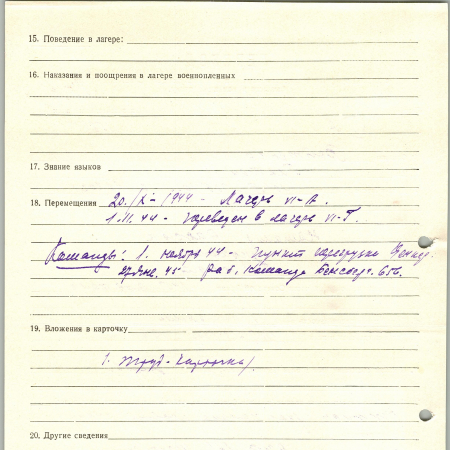 15. Поведение в лагере:
16. Наказания и поощрения в лагере военнопленных
17. Знание языков
18. Перемещения 20/IX-1944 - Лагерь VI-А.
1.XI.44 - переведен в лагерь VI-Г.
Команды: 1. ноября 44 - Пункт перегрузки
27 янв. 45 раб. команда 606.
19. Вложения в карточку
1. Труд-карточка/
20. Другие сведения